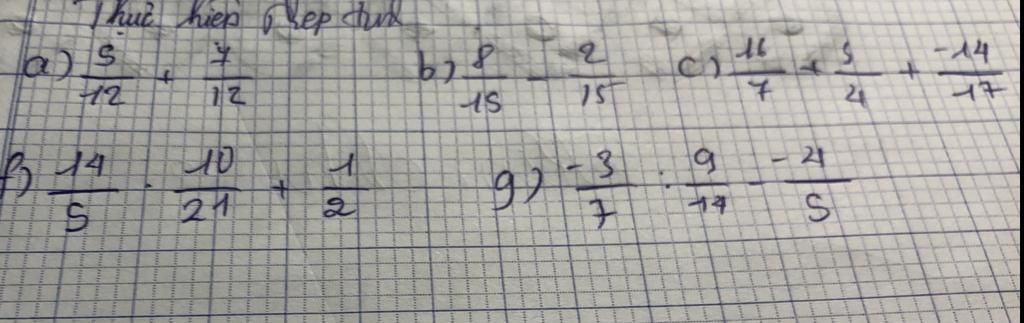 Thực hiện phép tính
a) 5/12 + 7/12 b) 8/15 - 2/15 c) 16/7 + 5/4 + -14/17
f) 14/5 . 10/21 + 1/2 g) -3/7 : 9/14 - -4/5